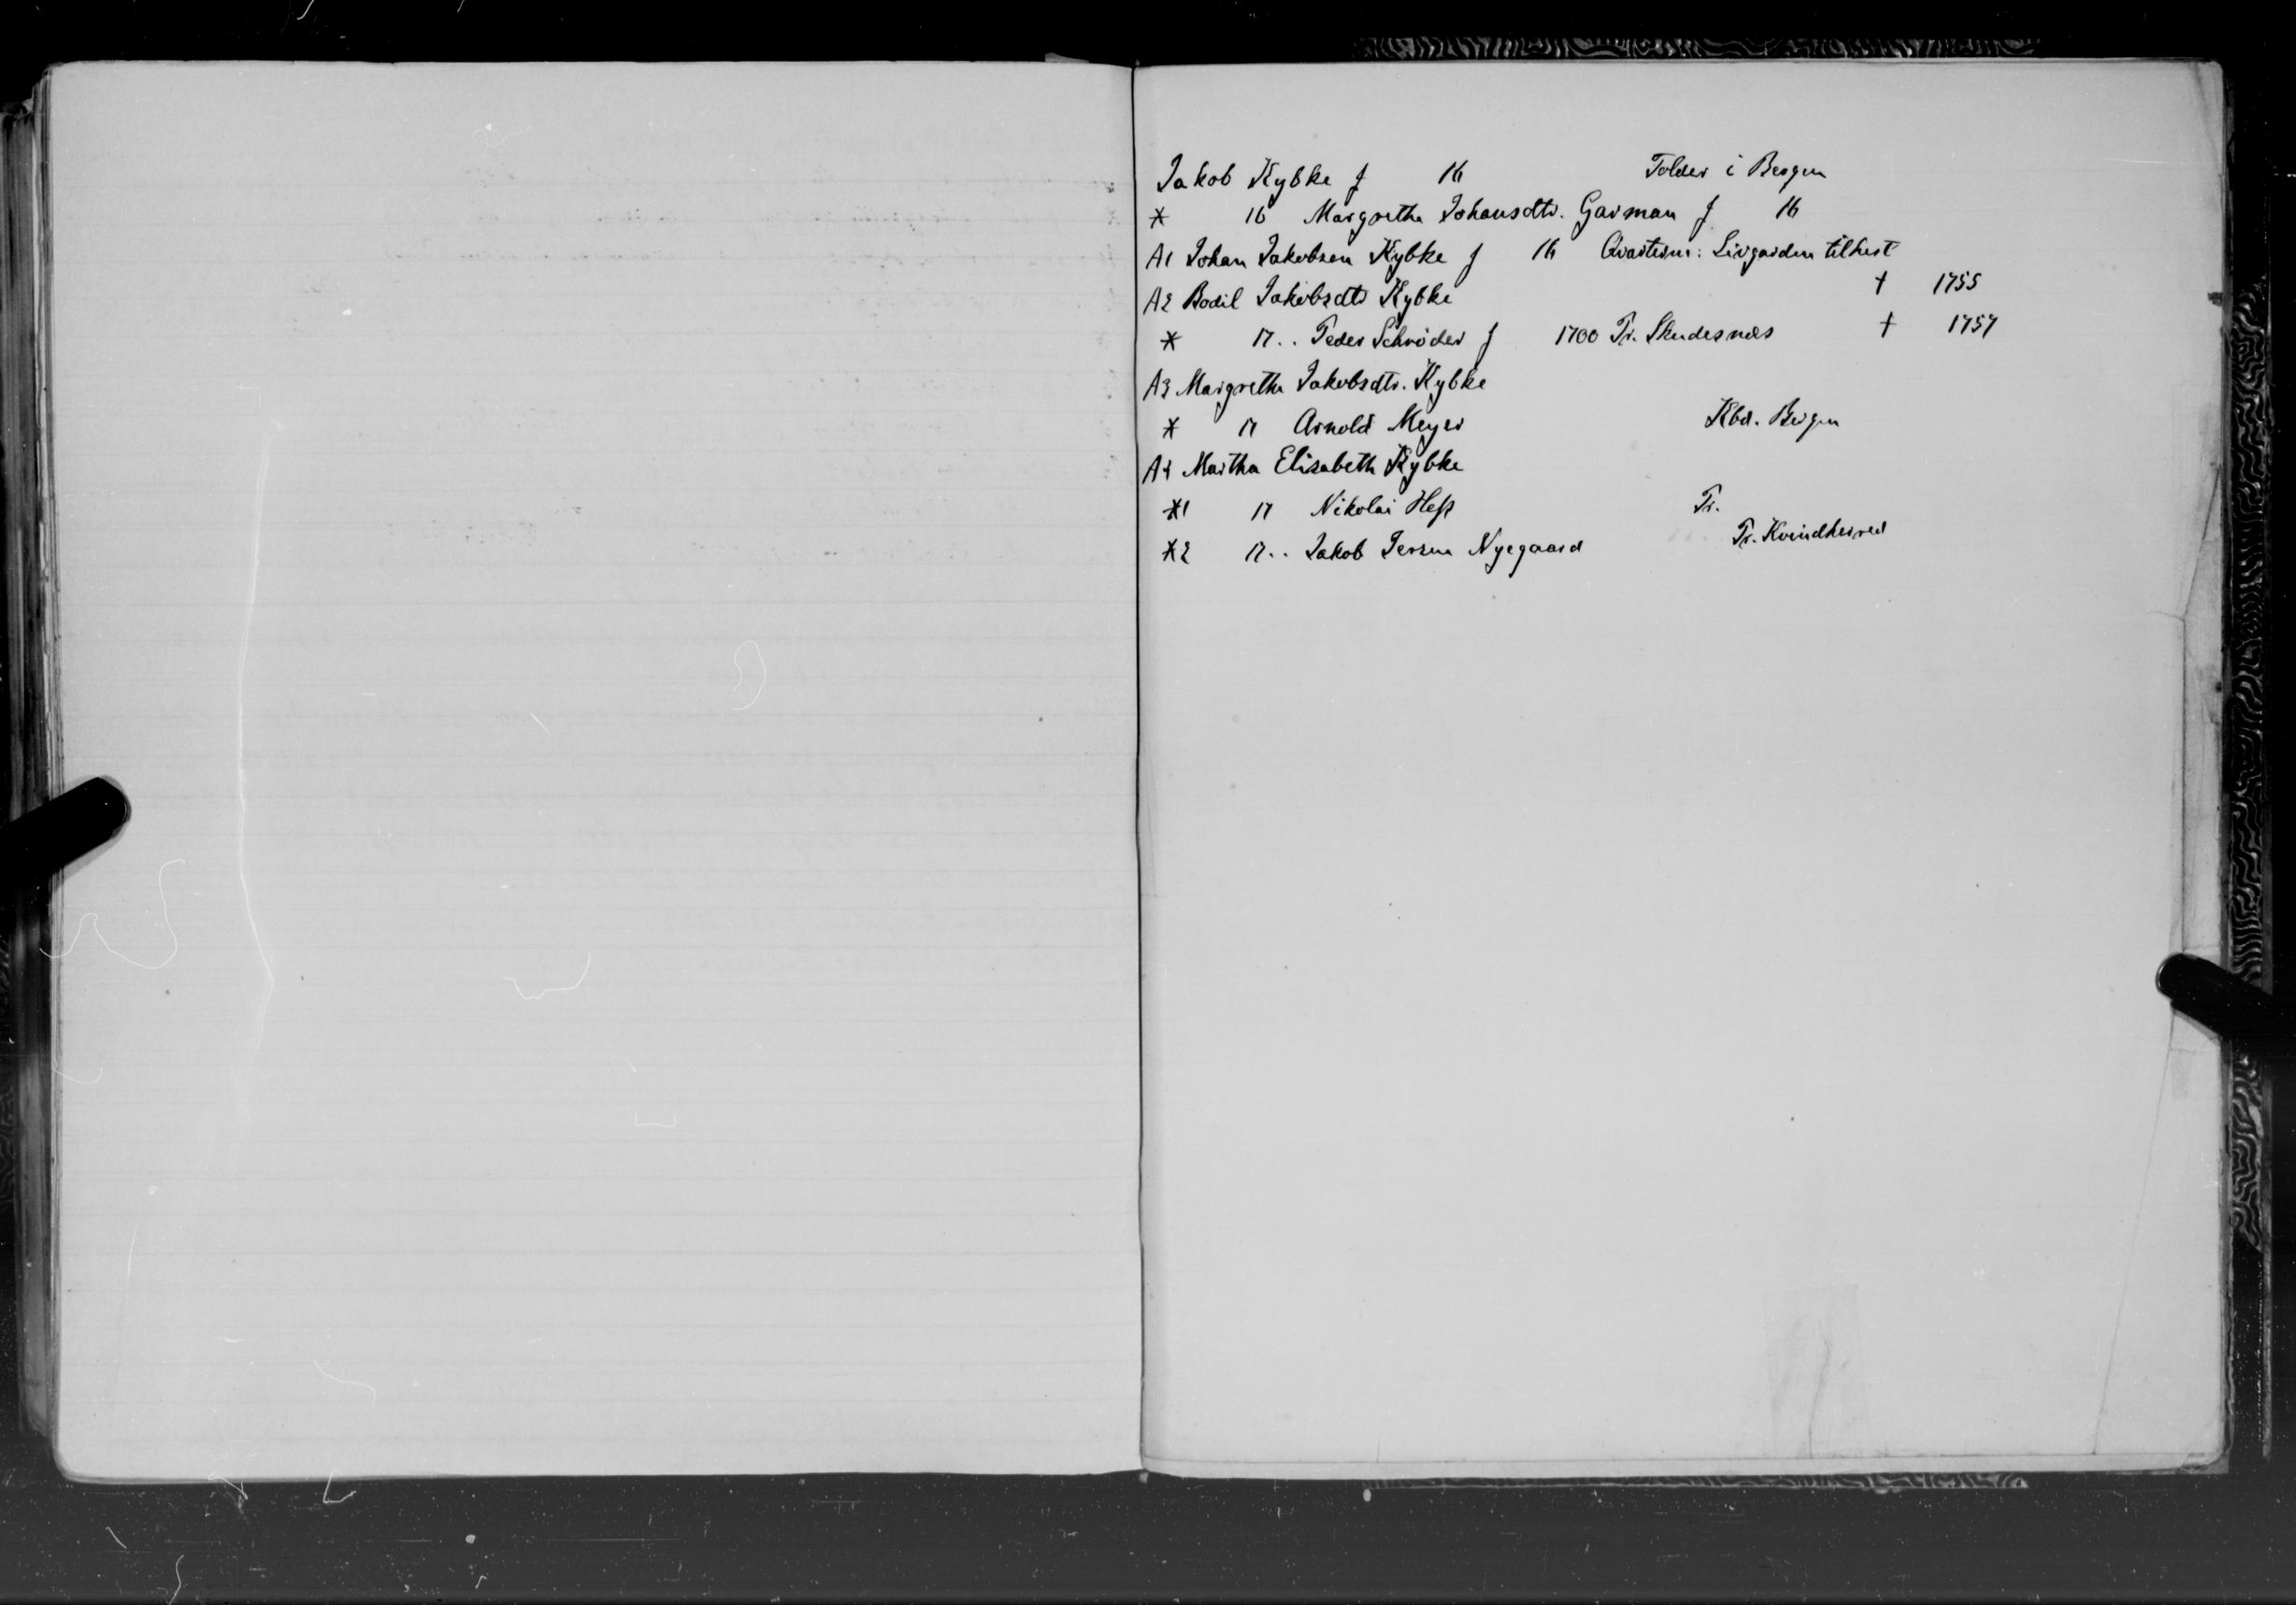 Jakob Kybke f 16 Tolder i Bergen
* 16 Margrethe Johansdtr. Garman f 16
A1 Johan Jakobsen Kybke f 16 Qvarterm: Livgarden tilhest
A2 Bodil Jakobsdtr Kybke † 1755
* 17.. Peder Schrøder f 1700 Pr. Skudesnæs † 1757
A3 Margrethe Jakobsdtr. Kybke
* 17 Arnold Meyer Kbd. Bergen
A4 Martha Elisabeth Kybke
*1 17 Nikolai Hess Pr.
*2 17.. Jakob Jersin Nygaard Pr. Kvindherred